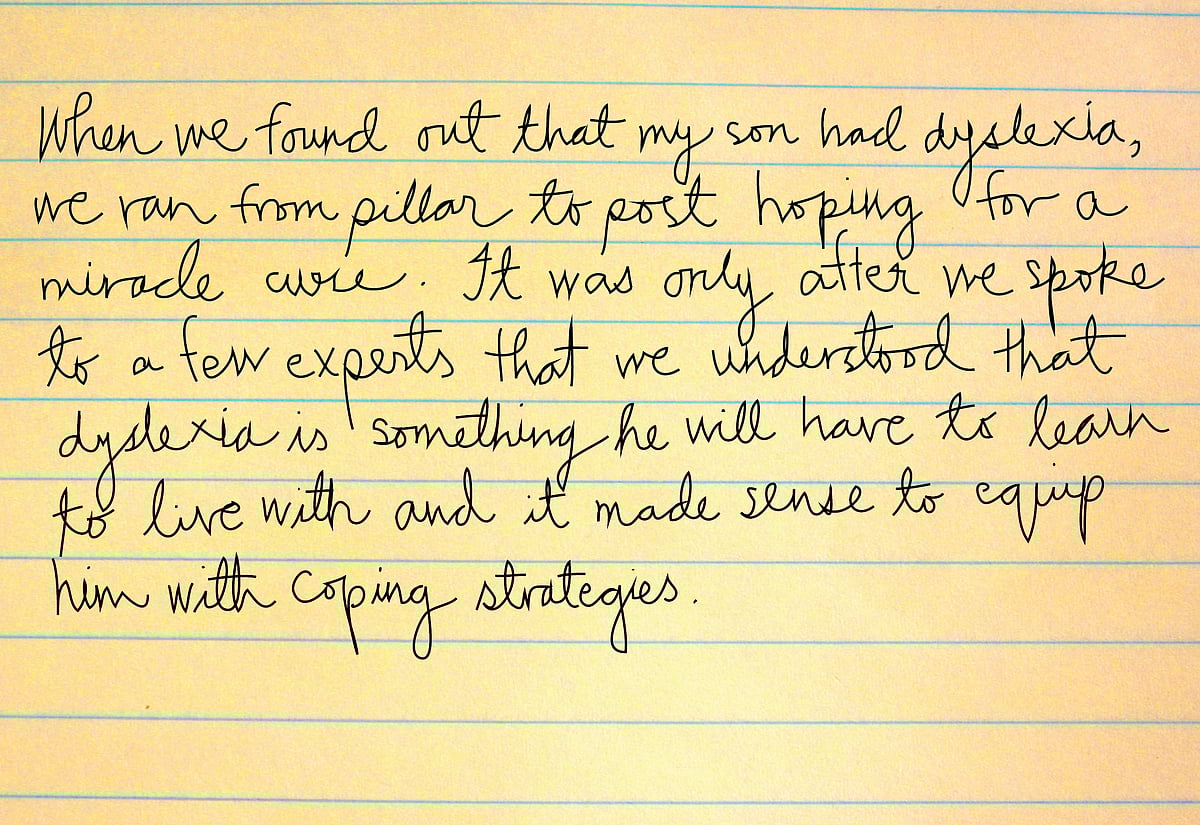 When we found out that my son had dyslexia,
we ran from pillar to post hoping for a
miracle cure. It was only after we spoke
to a few experts that we understood that
dyslexia is something he will have to learn
to live with and it made sense to equip
him with coping strategies.